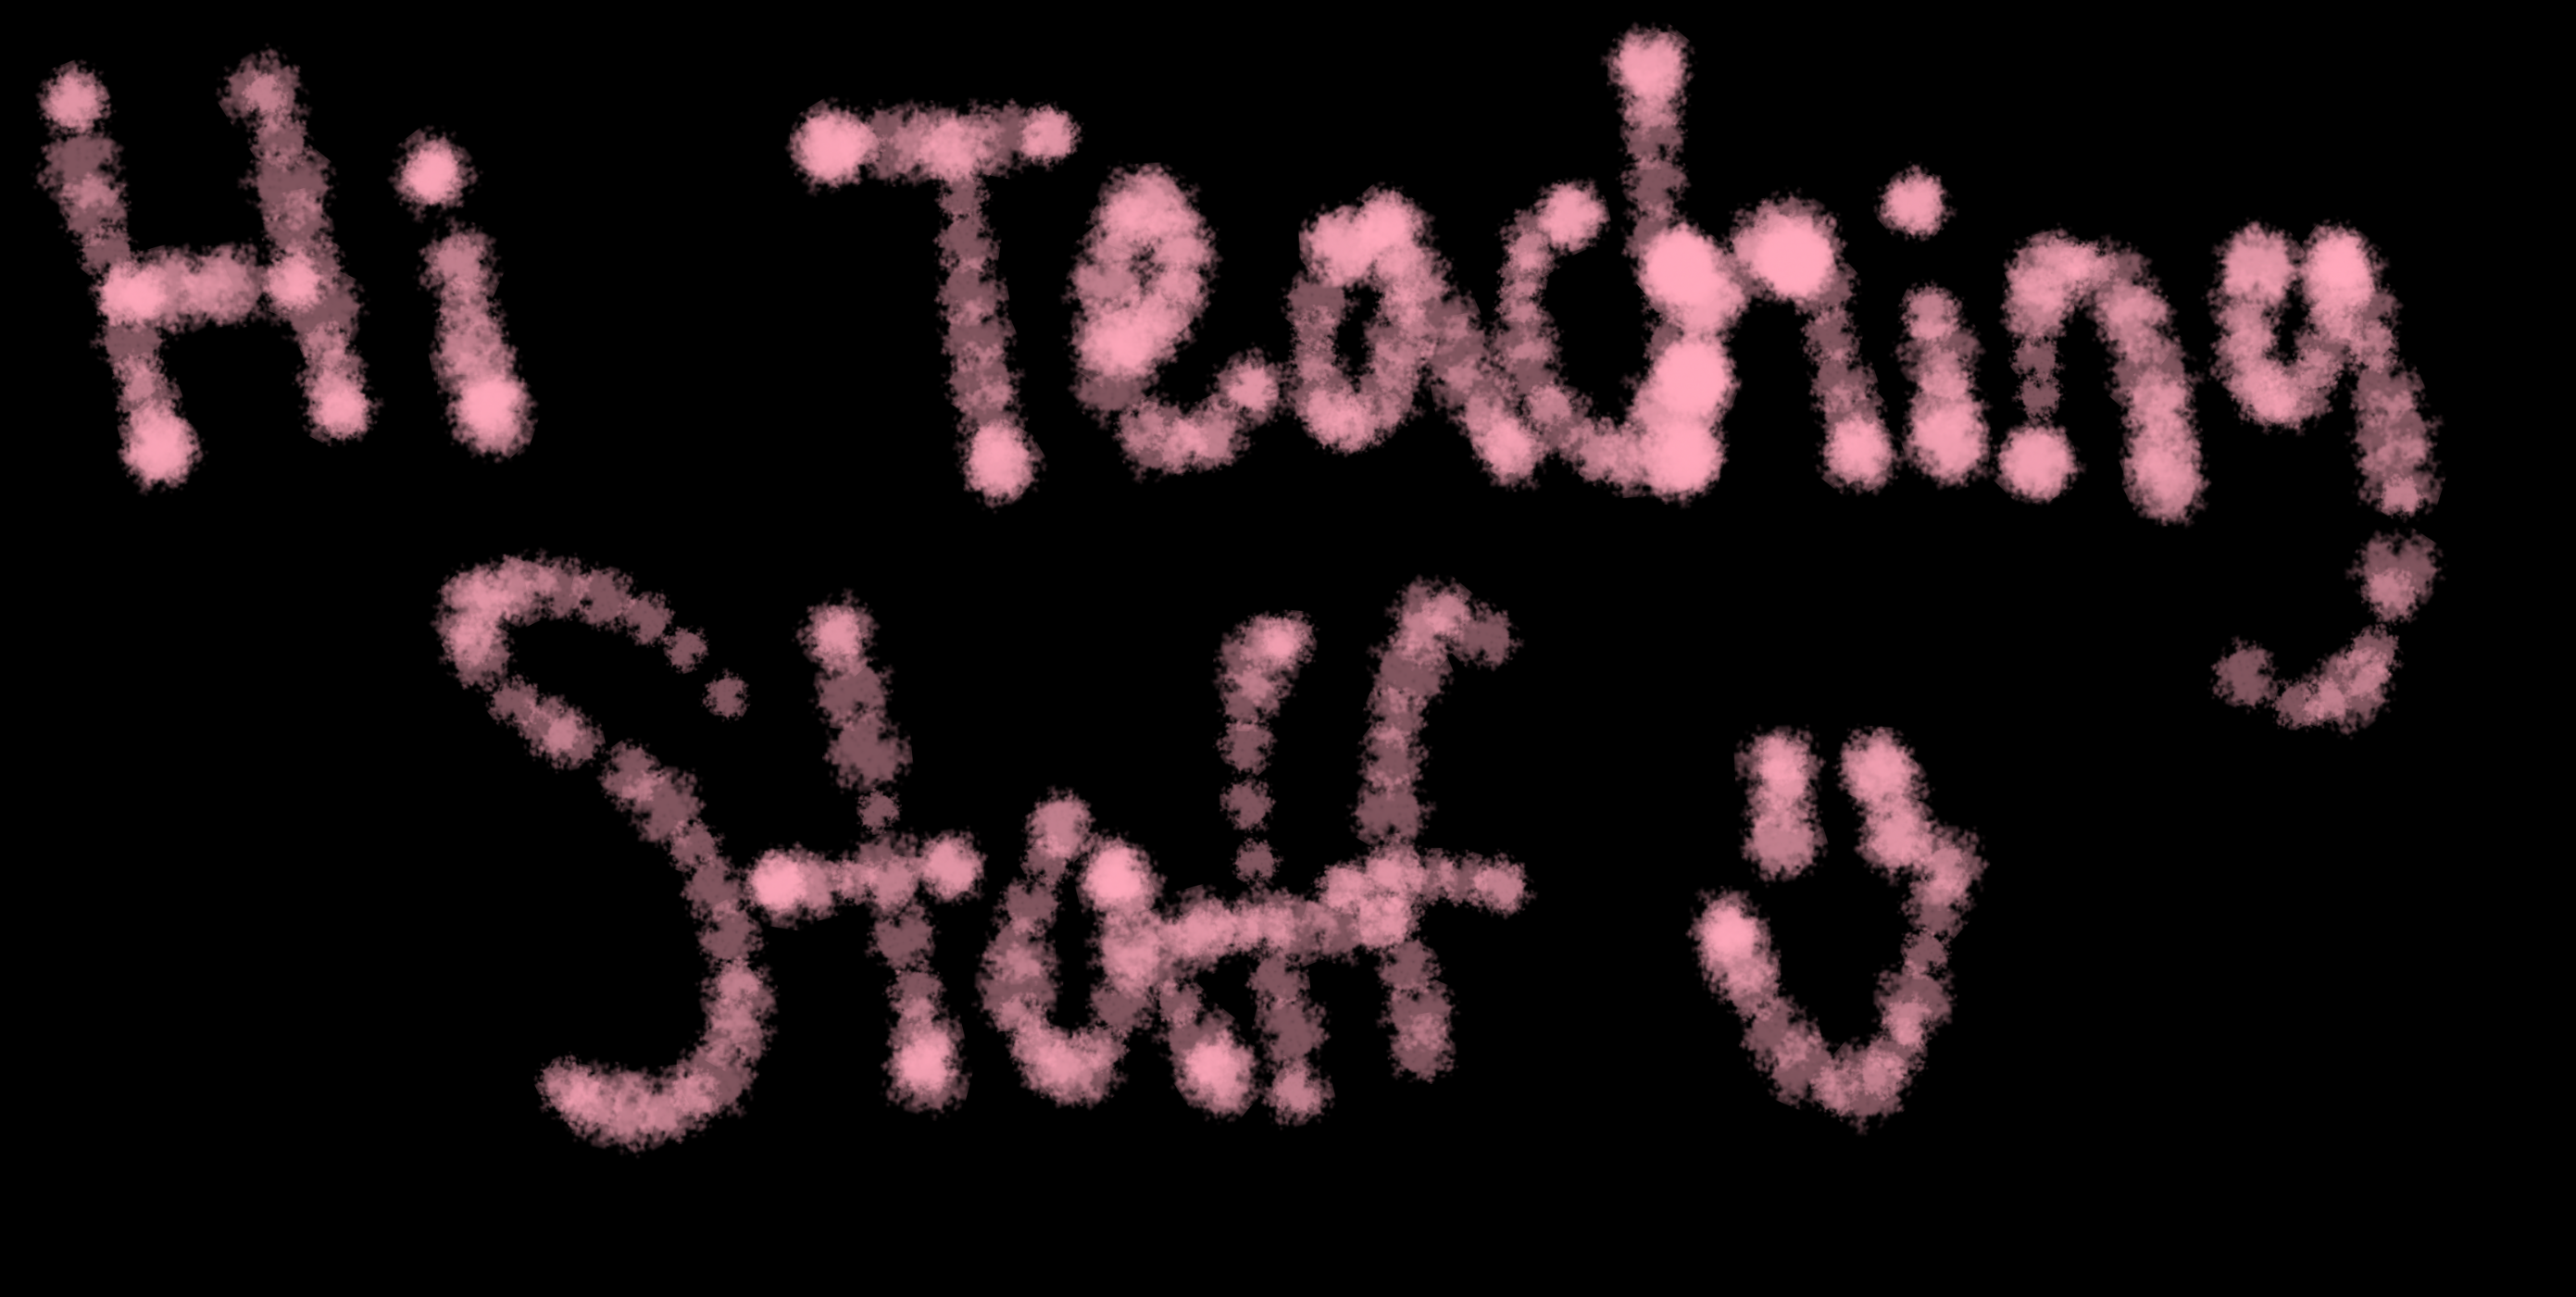 Hi Teaching
Staff